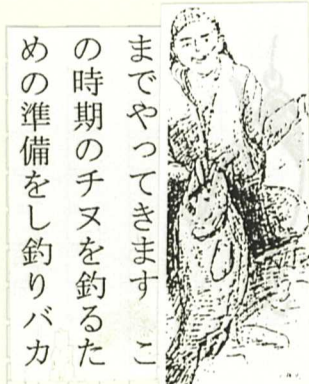 までやってきます　こ
の時期のチヌを釣るた
めの準備をし釣りバカ